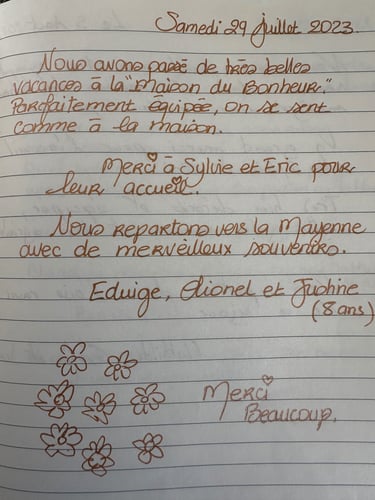 Samedi 29 juillet 2023.
Nous avons passé de très belles
vacances à la "Maison du Bonheur."
Parfaitement équipée, on se sent
comme à la maison.
Merci à Sylvie et Eric pour
leur accueil.
Nous repartons vers la Mayenne
avec de merveilleux souvenirs.
Eduige, et
(8 ans)
Merci
Beaucoup.